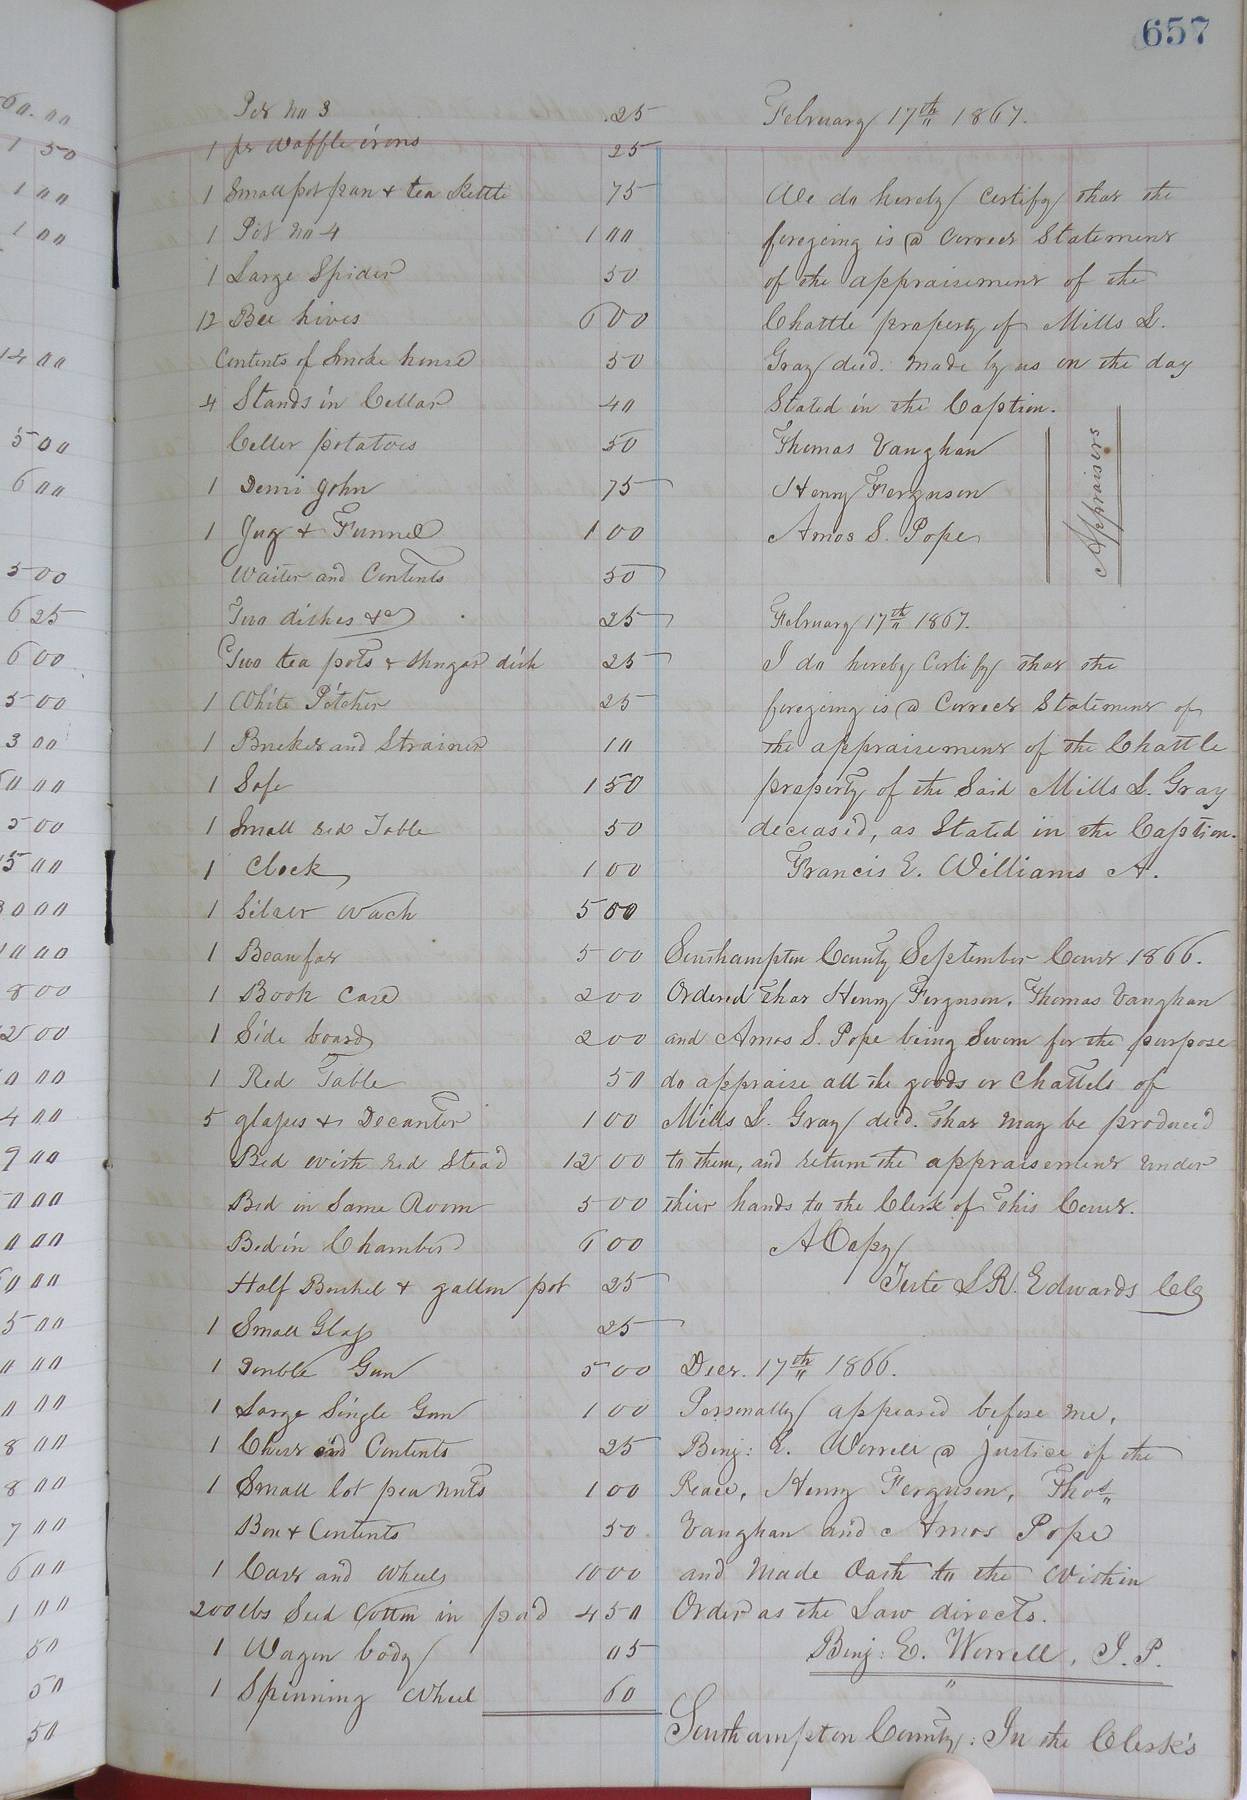 657
60.00
1 50
1 00
1 00
14 00
5 00
6 00
5 00
6 25
6 00
5 00
3 00
5 00
15 00
10 00
8 00
12 00
4 00
9 00
5 00
8 00
8 00
7 00
6 00
1 00
50
50
50
Pot No 3 .25
1 pr Waffle irons 25
1 Small pot pan & tea kettle 75
1 Pot No 4 1 00
1 Large Spider 50
12 Bee hives 6 00
Contents of Smoke house 50
4 Stands in Cellar 40
Celler potatoes 50
1 Demi John 75
1 Jug & Funnel 1 00
Waiter and Contents 50
Two dishes &c 25
Two tea pots & Shugar dish 25
1 White Pitcher 25
1 Bucket and Strainer 10
1 Safe 1 50
1 Small red Table 50
1 Clock 1 00
1 Silver Wach 5 00
1 Beaufat 5 00
1 Book Case 2 00
1 Side board 2 00
1 Red Table 50
5 glasses & Decanter 1 00
Bed with red Stead 12 00
Bed in Same Room 5 00
Bed in Chamber 6 00
Half Bushel & gallon pot 25
1 Small Glass 25
1 Double Gun 5 00
1 Large Single Gun 1 00
1 Chest and Contents 25
1 Small lot pea nuts 1 00
Box & Contents 50
1 Cart and Wheels 10 00
200 lbs Seed Cotton in pod 4 50
1 Wagon body 05
1 Spinning Wheel 60
February 17th 1867.
We do hereby Certify that the
foregoing is a Correct Statement
of the appraisement of the
Chattle property of Mills L.
Gray decd. made by us on the day
Stated in the Caption.
Thomas Vaughan
Henry Ferguson
Amos S. Pope
Appraisers
February 17th 1867.
I do hereby Certify that the
foregoing is a Correct Statement of
the appraisement of the Chattle
property of the Said Mills L. Gray
deceas'd, as Stated in the Caption.
Francis E. Williams A.
Southampton County September Court 1866.
Ordered that Henry Ferguson, Thomas Vaughan
and Amos S. Pope being Sworn for the purpose
do appraise all the goods or Chattels of
Mills L. Gray decd. that may be produced
to them, and return the appraisement under
thier hands to the Clerk of this Court.
A Copy
Teste L R. Edwards C C
Decr. 17th 1866.
Personally appeared before me,
Benj: E. Worrell a Justice of the
Peace, Henry Ferguson, Thos
Vaughan and Amos Pope
and made Oath to the Within
Order as the Law directs.
Benj: E. Worrell, J. P.
Southampton County: In the Clerk's